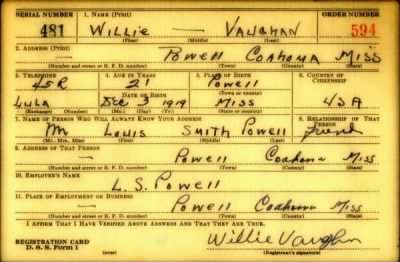 SERIAL NUMBER 1. NAME (Print) ORDER NUMBER
481 WILLIE — VAUGHAN 594
(First) (Middle) (Last)
2. ADDRESS (Print)
— Powell Coahoma Miss
(Number and street or R. F. D. number) (Town) (County) (State)
3. TELEPHONE 4. AGE IN YEARS 5. PLACE OF BIRTH 6. COUNTRY OF CITIZENSHIP
45R 21 Powell
DATE OF BIRTH (Town or county)
Lula Dec 3 1919 Miss USA
(Exchange) (Number) (Mo.) (Day) (Yr.) (State or country)
7. NAME OF PERSON WHO WILL ALWAYS KNOW YOUR ADDRESS 8. RELATIONSHIP OF THAT PERSON
M Louis Smith Powell friend
(Mr., Mrs., Miss) (First) (Middle) (Last)
9. ADDRESS OF THAT PERSON
— Powell Coahoma Miss
(Number and street or R. F. D. number) (Town) (County) (State)
10. EMPLOYER'S NAME
L. S. Powell
11. PLACE OF EMPLOYMENT OR BUSINESS
Powell Coahoma Miss
(Number and street or R. F. D. number) (Town) (County) (State)
I AFFIRM THAT I HAVE VERIFIED ABOVE ANSWERS AND THAT THEY ARE TRUE.
REGISTRATION CARD
D. S. S. Form 1 Willie Vaughn
(Registrant's signature)